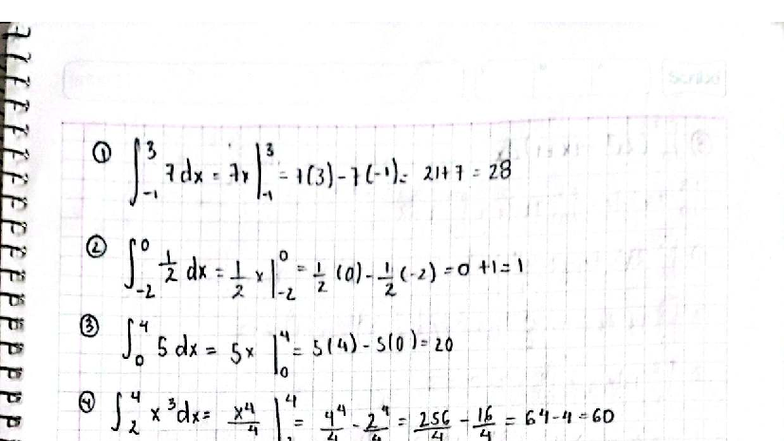 Scribe
① ∫₋₁³ 7 dx = 7x |₋₁³ = 7(3) - 7(-1) = 21+7 = 28
② ∫₋₂⁰ 1/2 dx = 1/2 x |₋₂⁰ = 1/2 (0) - 1/2 (-2) = 0 + 1 = 1
③ ∫₀⁴ 5 dx = 5x |₀⁴ = 5(4) - 5(0) = 20
④ ∫₂⁴ x³ dx = x⁴/4 |₂⁴ = 4⁴/4 - 2⁴/4 = 256/4 - 16/4 = 64-4 = 60